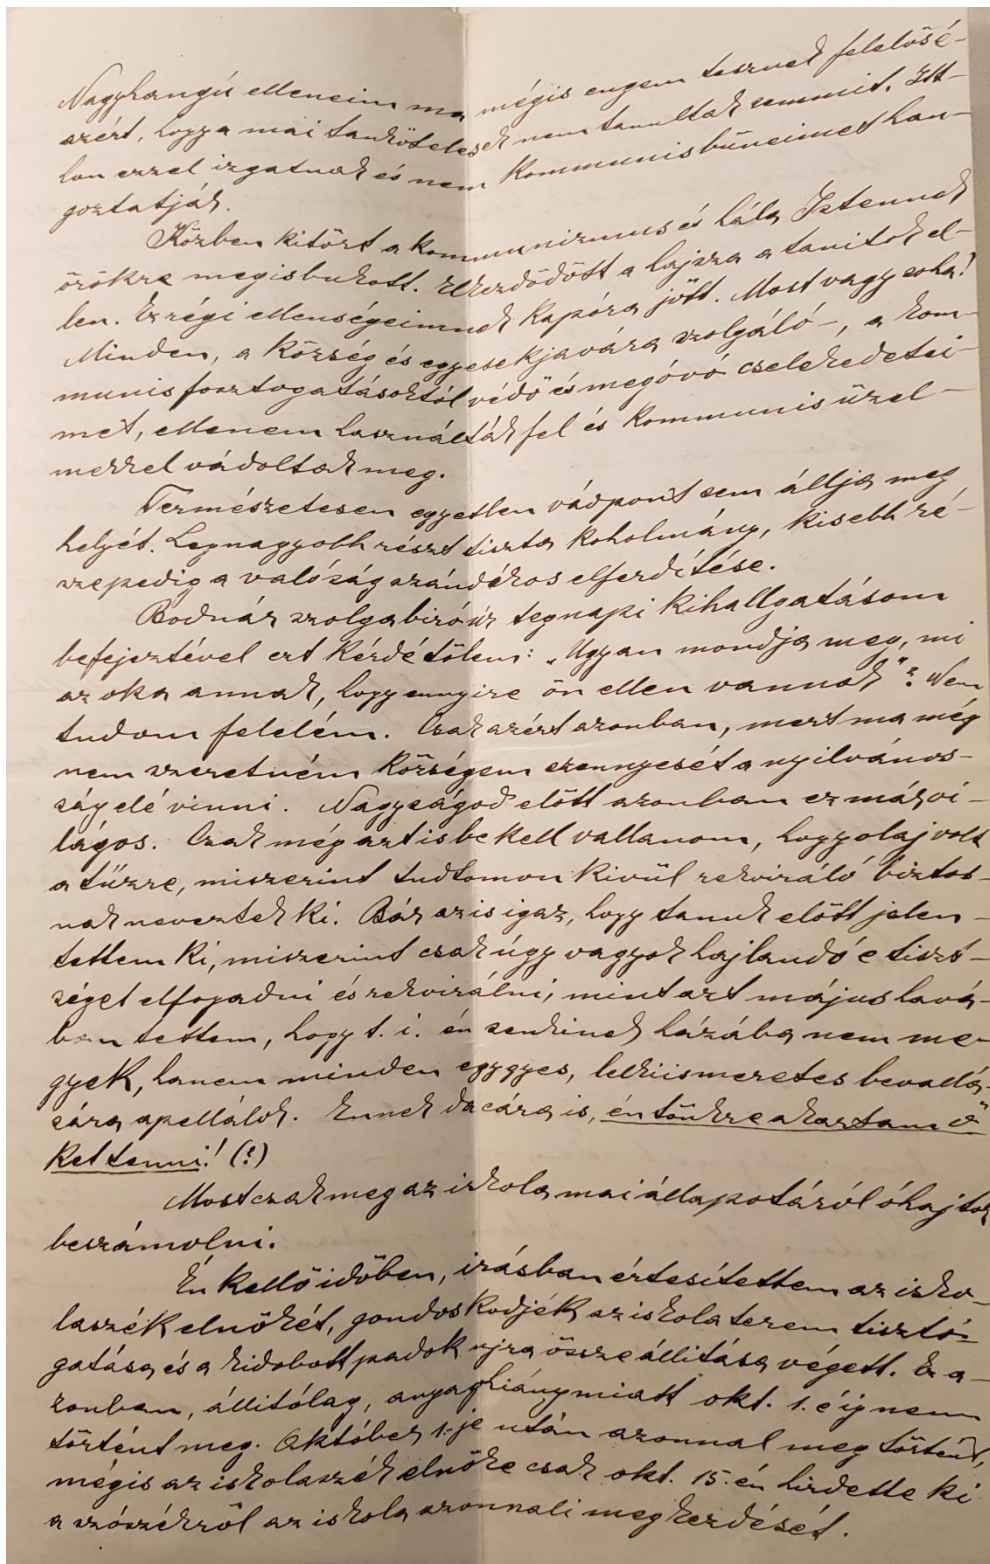 Nagyhangú elleneim ma mégis engem tesznek felelősé-
azért, hogy a mai tankötelesek nem tanultak semmit. Itt-
hon ezzel izgatnak és nem kommunisbűneimet han-
goztatják.
Közben kitört a kommunizmus és hála Istennek
örökre megisbukott. Elkezdődött a hajsza a tanitok el-
len. Ez régi ellenségeimnek kapóra jött. Most vagy soha!
Minden, a község és egyesek javára szolgáló-, a kom-
munis fosztogatásoktól védő és megóvó cselekedetei-
met, ellenem használták fel és kommunis üzel-
mekkel vádoltak meg.
Természetesen egyetlen vádpont sem állja meg
helyét. Legnagyobb részt tiszta koholmány, kisebb ré-
sze pedig a valóság szándékos elferdítése.
Bodnár szolgabiró úr tegnapi kihallgatásom
befejeztével ezt kérdé tőlem: „Ugyan mondja meg, mi
az oka annak, hogy ennyire ön ellen vannak"? Nem
tudom felelém. Csak azért azonban, mert ma még
nem szeretném községem szennyesét a nyilvános-
ság elé vinni. Nagyságod előtt azonban ez már vi-
lágos. Csak még azt is be kell vallanom, hogy olaj volt
a tűzre, miszerint tudtomon kivül rekviráló biztos-
nak neveztek ki. Bár az is igaz, hogy tanuk előtt jelen-
tettem ki, miszerint csak úgy vagyok hajlandó e tiszt-
séget elfogadni és rekvirálni, mint azt május havá-
ban tettem, hogy t. i. én senkinek házába nem me-
gyek, hanem minden egygyes, lelkiismeretes bevallá-
sára apellálok. Ennek dacára is, én tönkre akartam ő-
ket tenni! (?)
Most csak meg az iskola mai állapotáról óhajtok
beszámolni.
Én kellő időben, irásban értesítettem az isko-
laszék elnökét, gondoskodjék az iskola terem tisztó-
gatása és a kidobott padok ujra össze állitása végett. Ez a-
zonban, állitólag, anyaghiány miatt okt. 1. éig nem
történt meg. Október 1.-je után azonnal meg történt,
mégis az iskolaszék elnöke csak okt. 15.-én hirdette ki
a szószékről az iskola azonnali megkezdését.